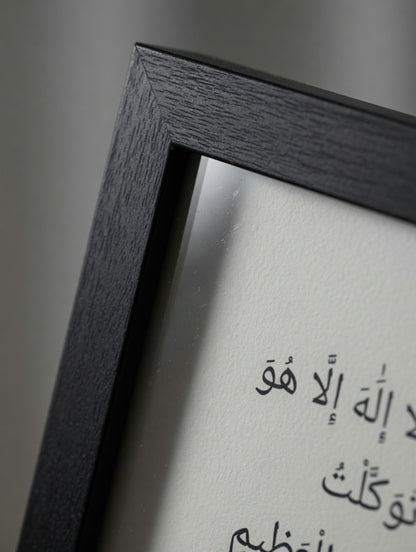 لا إِلَٰهَ إِلَّا هُوَ
تَوَكَّلْتُ
الْعَظِيم